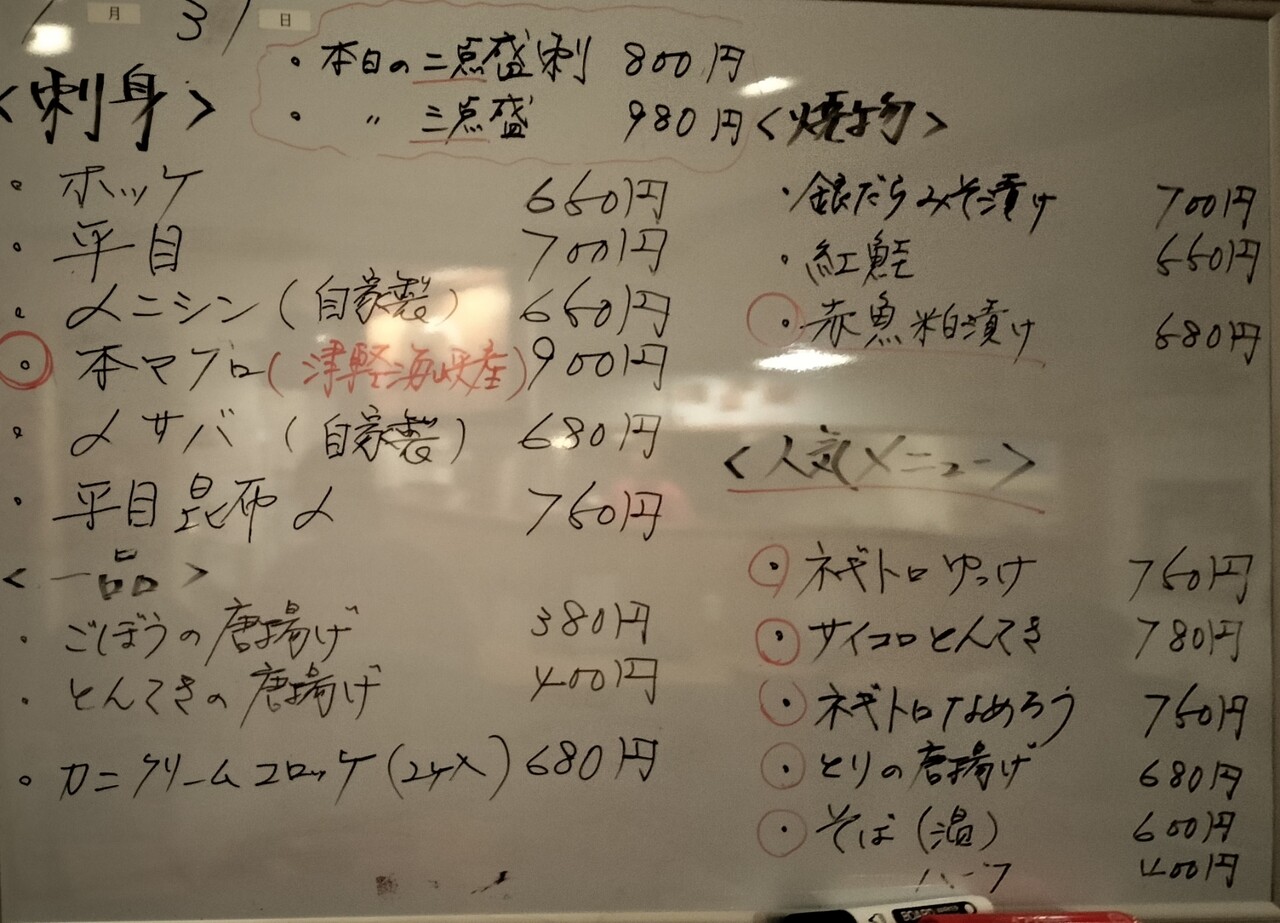 月 31 日
・本日の二点盛刺 800円
・ 〃 三点盛 980円
<刺身>
・ホッケ 660円
・平目 700円
・〆ニシン(自家製) 660円
・本マグロ(津軽海峡産) 900円
・〆サバ(自家製) 680円
・平目昆布〆 760円
<一品>
・ごぼうの唐揚げ 380円
・とんてきの唐揚げ 400円
・カニクリームコロッケ(2ケ入) 680円
<焼物>
・銀だらみそ漬け 700円
・紅鮭 550円
・赤魚粕漬け 680円
<人気メニュー>
・ネギトロゆっけ 760円
・サイコロとんてき 780円
・ネギトロなめろう 760円
・とりの唐揚げ 680円
・そば(温) 600円
ハーフ 400円
BOARD